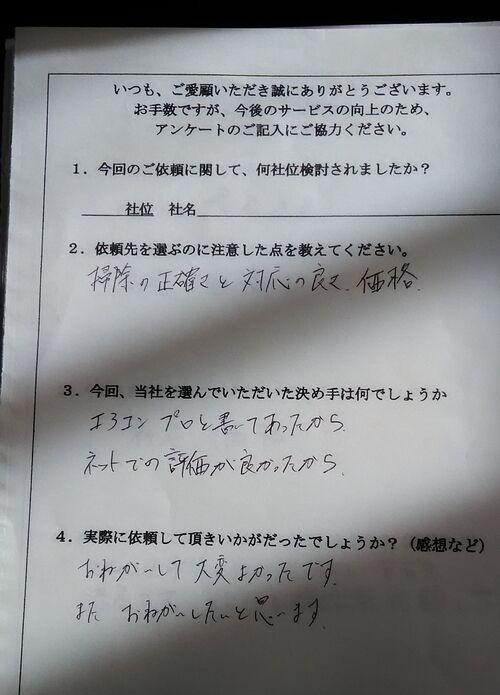 いつも、ご愛願いただき誠にありがとうございます。
お手数ですが、今後のサービスの向上のため、
アンケートのご記入にご協力ください。
1．今回のご依頼に関して、何社位検討されましたか？
社位　社名
2．依頼先を選ぶのに注意した点を教えてください。
掃除の正確さと対応の良さ、価格.
3．今回、当社を選んでいただいた決め手は何でしょうか
エアコン プロと書いてあったから.
ネットでの評価が良かったから.
4．実際に依頼して頂きいかがだったでしょうか？（感想など）
おねがいして大変よかったです.
また おねがいしたいと思います.